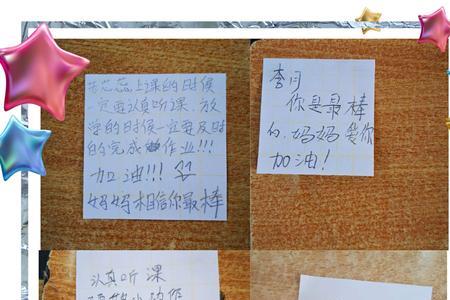 芯蕊上课的时候
一定要认真听课,放
学的时候一定要及时
的完成作业!!!
加油!!!
妈妈相信你最棒
李月
你是最棒
的,妈妈爱你
加油!
认真听课